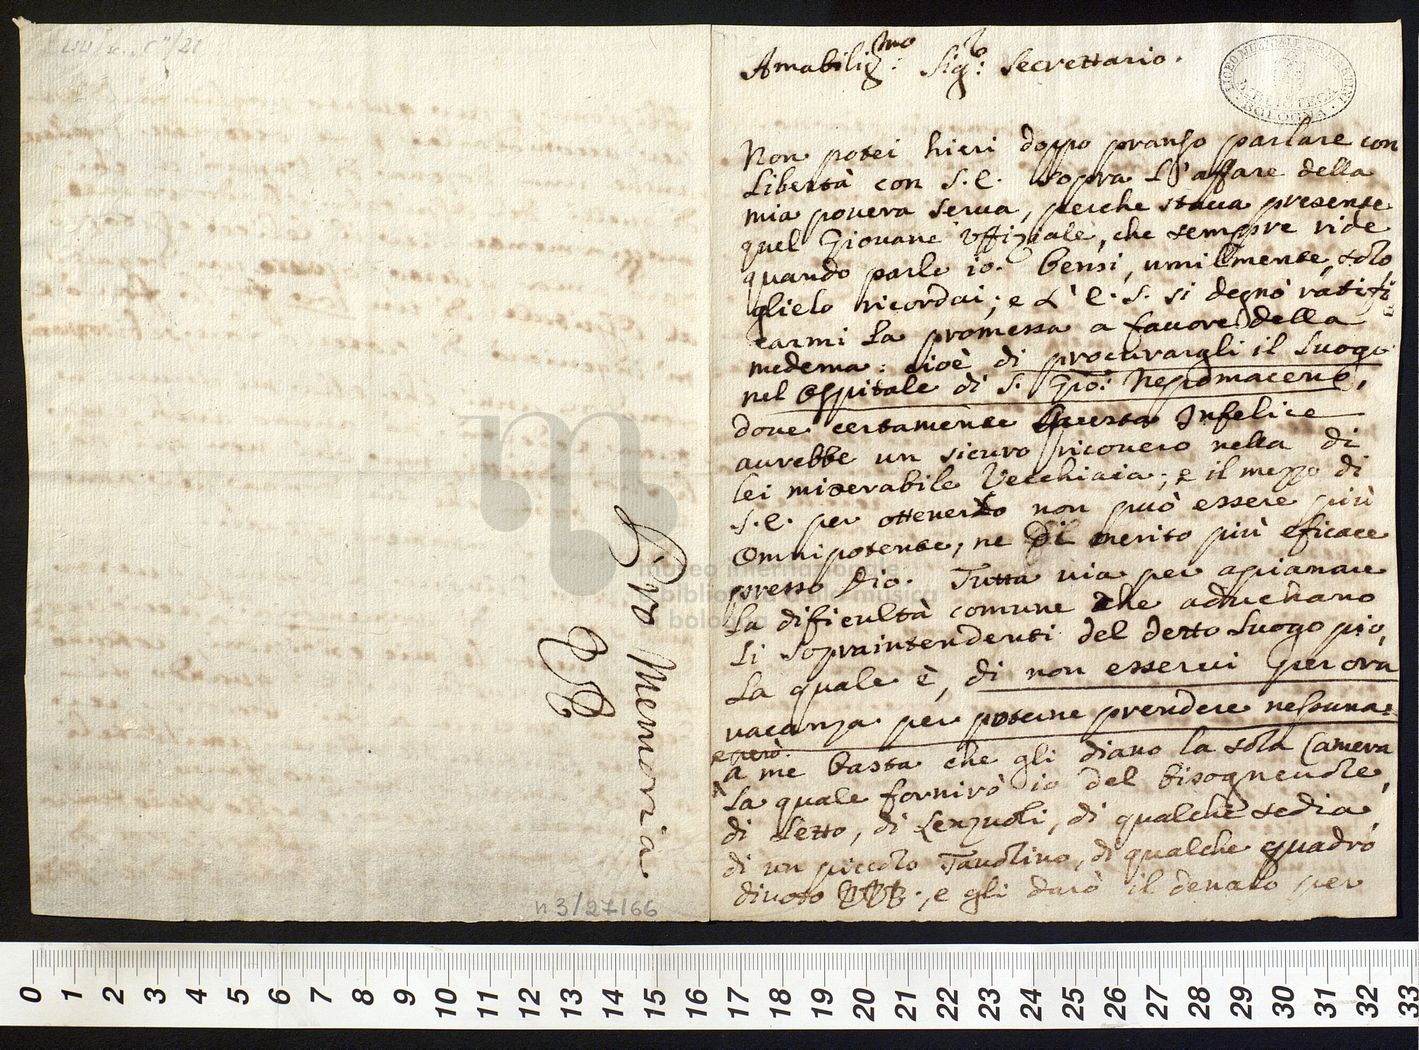 Pro Memoria
n 3/27/66
Amabiliss:mo Sig:e Secrettario.
LICEO MUSICALE G.B. MARTINI
BIBLIOTECA
BOLOGNA
Non potei hieri doppo pranso parlare con
libertà con S. E. sopra L'affare della
mia povera serva, perche stava presente
quel Giovane Uffiziale, che sempre ride
quando parlo io. Bensì, umilmente, solo
glielo ricordai; e L' E. S. si degnò ratifi
carmi la promessa a favore della
medema: cioè di procurargli il Luogo
nel Ospitale di S. Gio: Nepomaceno,
dove certamente questa Infelice
avrebbe un sicuro ricovero nella di
lei miserabile Vecchiaia; e il mezzo di
S. E. per ottenerlo non può essere più
Omnipotente, ne il merito più eficace
presso Dio. Tutta via per apianare
La dificultà comune che aducano
Li Sopraintendenti del detto Luogo pio,
La quale è, di non esservi per ora
vacanza per poterne prendere nessuna:
e però
a me basta che gli diano la sola Camera
La quale fornirò io del bisognevole,
di Letto, di Lenzuoli, di qualche sedia,
di un piccolo Tavolino, di qualche quadro
divoto, e gli darò il denaro per
museo internazionale
e biblioteca della musica
di bologna
0 1 2 3 4 5 6 7 8 9 10 11 12 13 14 15 16 17 18 19 20 21 22 23 24 25 26 27 28 29 30 31 32 33